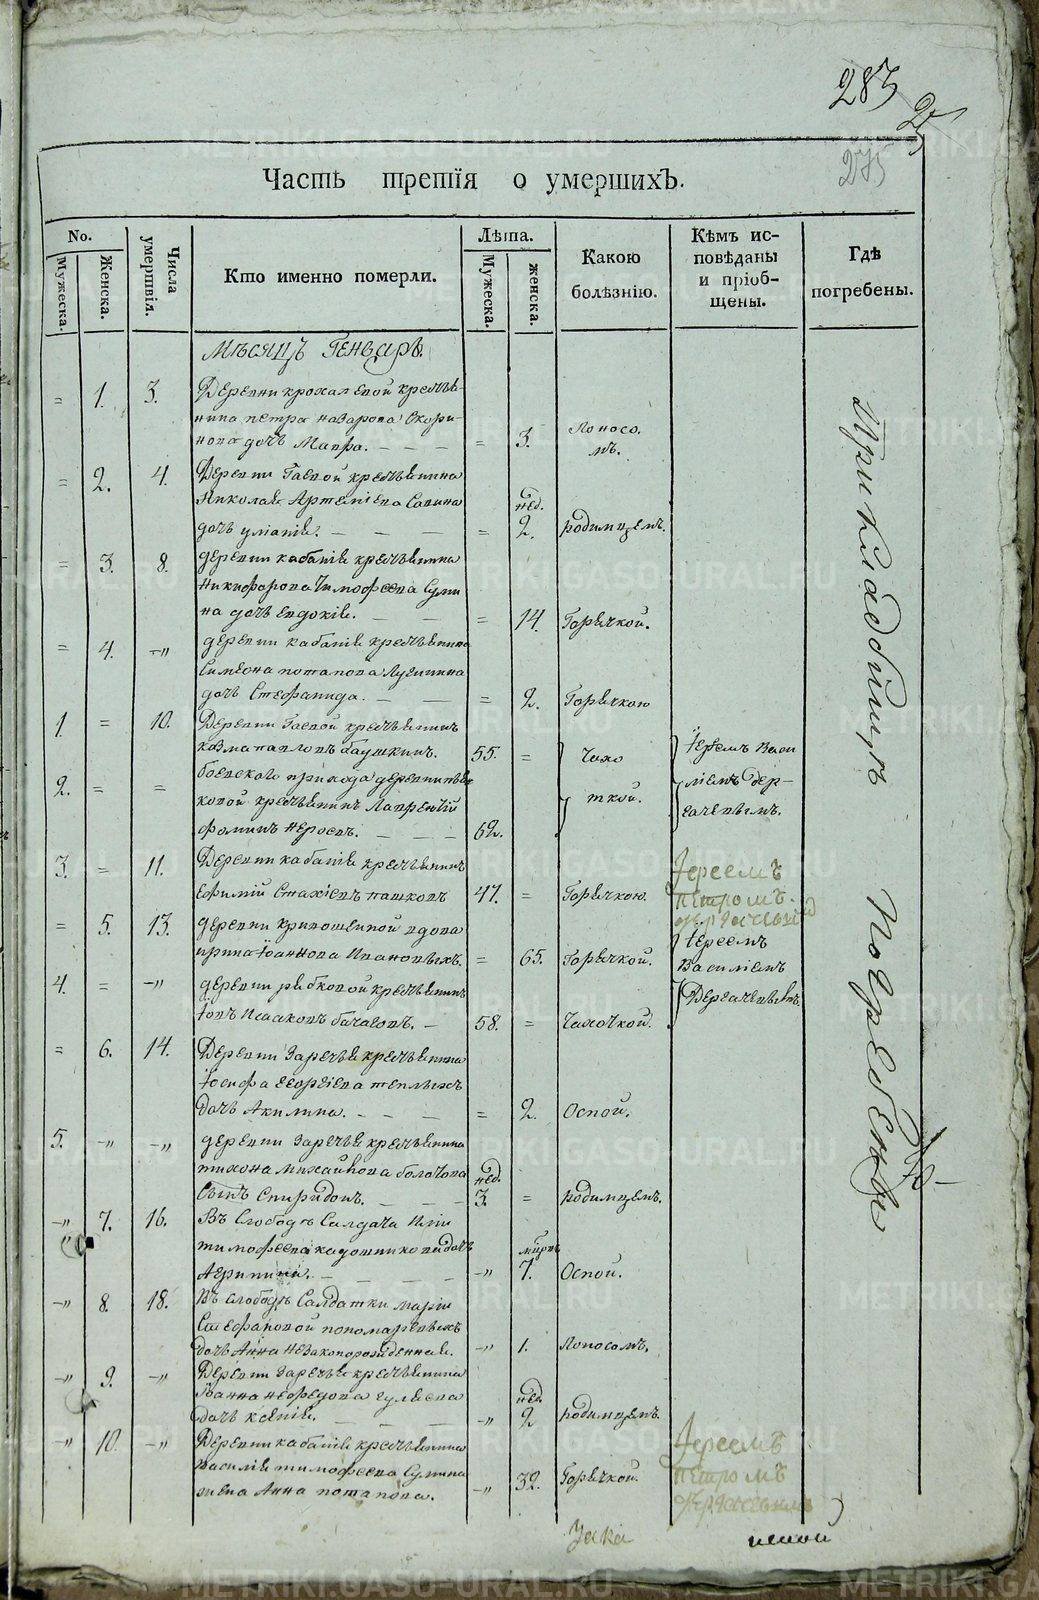 283
275
Часть третія о умершихъ.
No.
Мужеска.
Женска.
Числа умертвія.
Кто именно померли.
Лѣта.
Мужеска.
женска.
Какою болѣзнію.
Кѣмъ исповѣданы и пріобщены.
Гдѣ погребены.
Мѣсяцъ Генварь.
= 1. 3. Деревни крохалевой крестья-
нина петра назарова Скори-
нова дочь Мавра. = 3. Поносомъ.
= 2. 4. Деревни Гаевой крестьянина
Николая Артеміева Савина
дочь уліанія. = нед. 2. родимцемъ.
= 3. 8. деревни кабанія крестьянина
никифора тимофеева Сули
на дочь евдокія. = 14. Горячкой.
= 4. -"- деревни кабанія крестьянина
Симеона потапова
дочь Стефанида. = 2. Горячкою
1. = 10. Деревни Гаевой крестьянинъ
козма павловъ баушкинъ. 55. = Чахоткой. Іереемъ Васи
2. = = боевского прихода деревни
крестьянинъ Лаврентій
фоминъ 62. ліемъ Дергачевымъ.
3. = 11. Деревни кабанія крестьянинъ
Ефимій Стахіевъ пашковъ 47. = Горячкою. Іереемъ
петромъ.
= 5. 13. деревни кривошеиной вдова
ирина Іоаннова Ивановыхъ. = 65. Горячкой. Іереемъ
Василіемъ
4. = -"- деревни рыбковой крестьянинъ
Іовъ Исааковъ 58. = Чахоткой. Дергачевымъ.
= 6. 14. Деревни Заречья крестьянина
Іосифа георгіева теплыхъ
дочь Акилина. = 2. Оспой.
5. -"- -"- деревни Заречья крестьянина
тихона михайлова
Сынъ Спиридонъ. нед. 3. = родимцемъ.
-"- 7. 16. Въ Слободѣ Салдата Иліи
тимофеева дочь
Агрипина. -"- 7. Оспой.
-"- 8. 18. Въ Слободѣ Салдатки маріи
Стефановой пономаревыхъ
дочь Анна незаконорожденная. -"- 1. Поносомъ.
-"- 9. -"- Деревни Заречья крестьянина
Іоанна нефедова гуляева
дочь ксенія. -"- нед. 2 родимцемъ.
-"- 10. -"- Деревни кабанія крестьянина
василія тимофеева Сулина
жена Анна потапова. -"- 32. Горячкой. Іереемъ
петромъ
При кладбищѣ погребены
METRIKI.GASO-URAL.RU